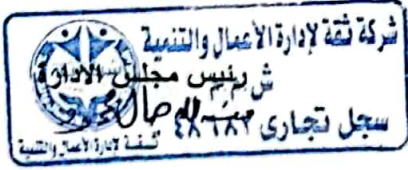 شركة ثقة لإدارة الأعمال والتنمية
ش.م.م
رئيس مجلس الادارة
سجل تجارى ٤٨٦٨٢
ثقة لإدارة الأعمال والتنمية